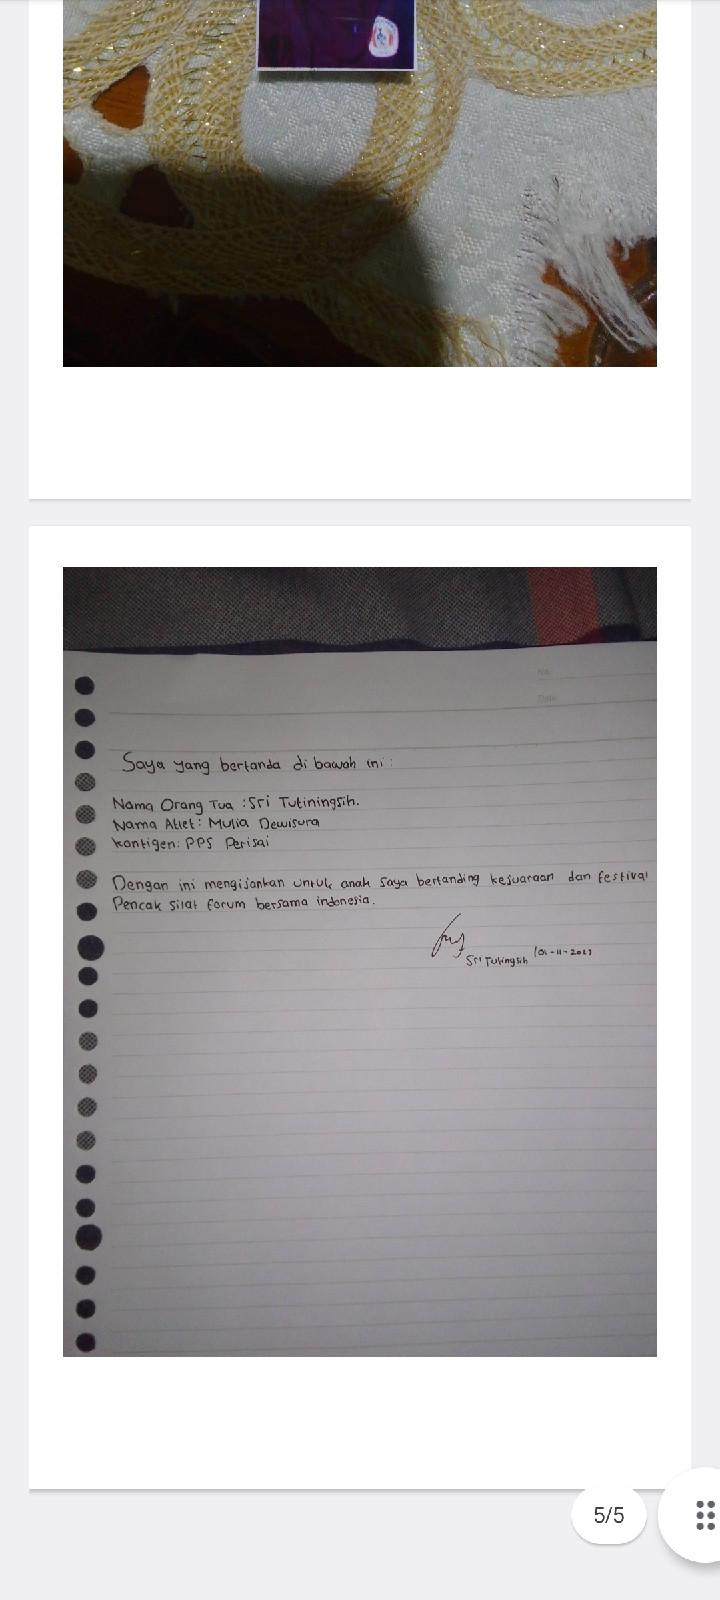 No.
Date
Saya yang bertanda di bawah ini :
Nama Orang Tua : Sri Tutiningsih.
Nama Atlet : Mulia Dewisura
kontigen : PPS Perisai
Dengan ini mengijankan untuk anak saya bertanding kejuaraan dan festival
Pencak silat forum bersama indonesia.
Sri Tutingsih /01-11-2023
5/5